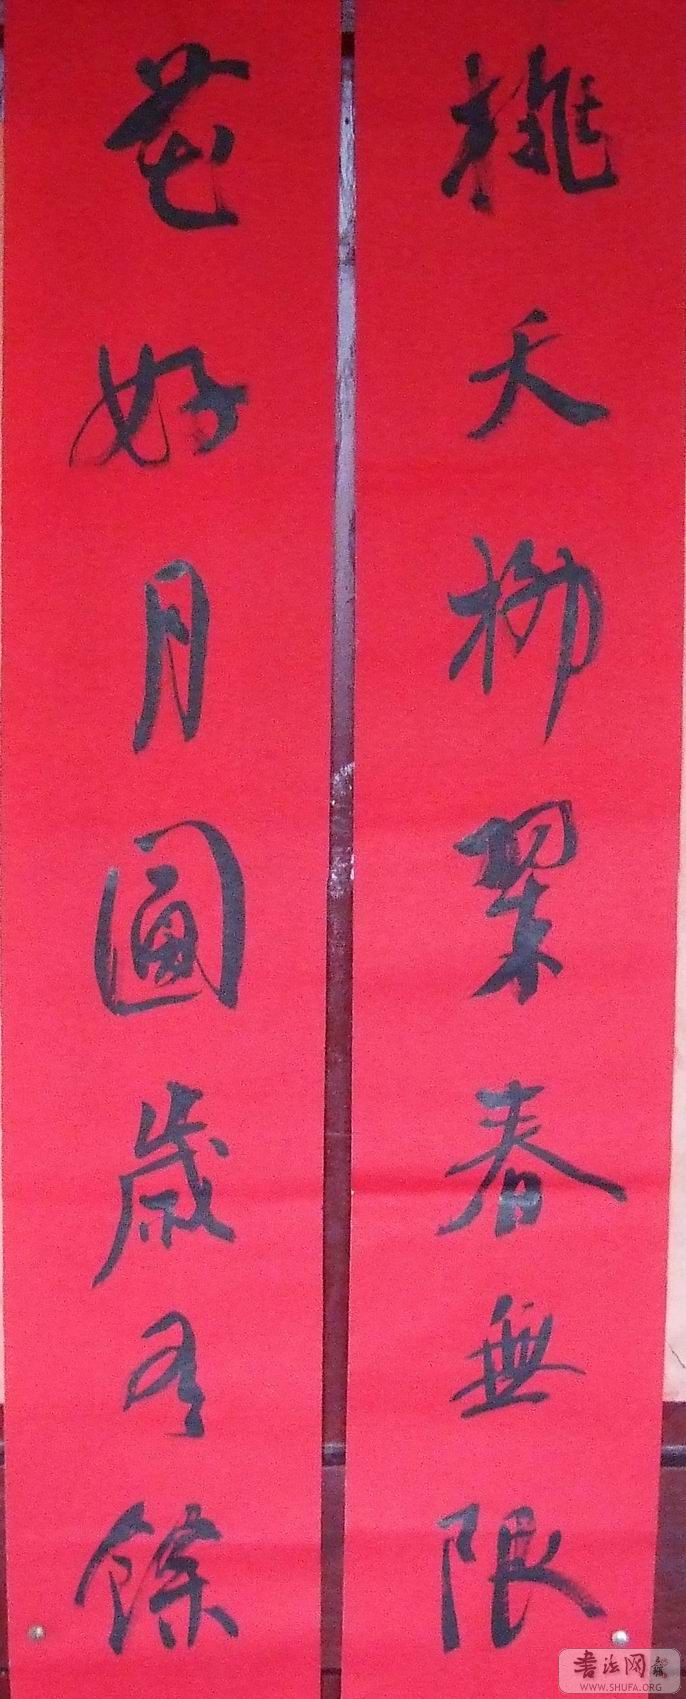 桃夭柳翠春無限
花好月圓歲有餘
書法网
WWW.SHUFA.ORG